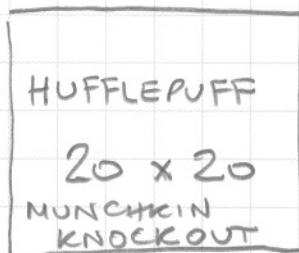 HUFFLEPUFF
20 x 20
MUNCHKIN
KNOCKOUT